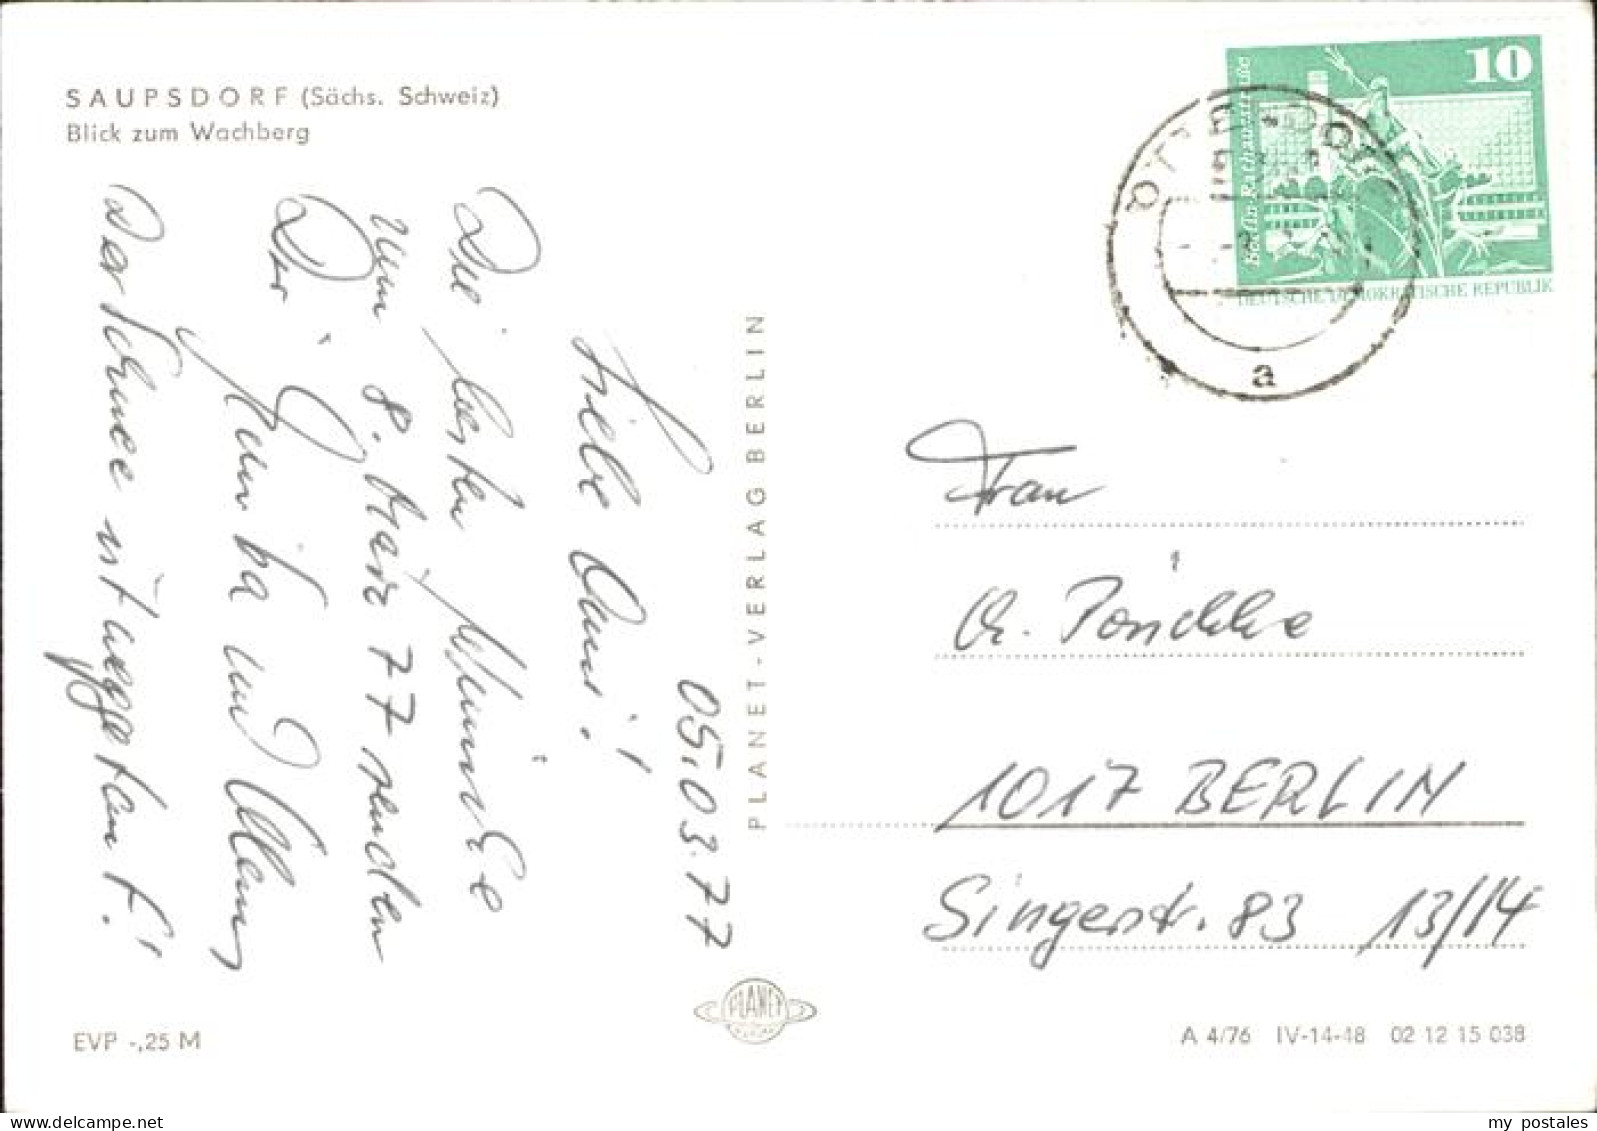 SAUPSDORF (Sächs. Schweiz)
Blick zum Wachberg
05.03.77
Liebe Omi!
Die besten Wünsche
zum 8. März 77 senden
Dir
und
Der Schnee ist weggetaut!
PLANET-VERLAG BERLIN
PLANET
EVP -,25 M
10
Berlin-Rathausstraße
DEUTSCHE DEMOKRATISCHE REPUBLIK
a
Frau
1017 BERLIN
Singerstr. 83 13/14
A 4/76 IV-14-48 02 12 15 038
my postales